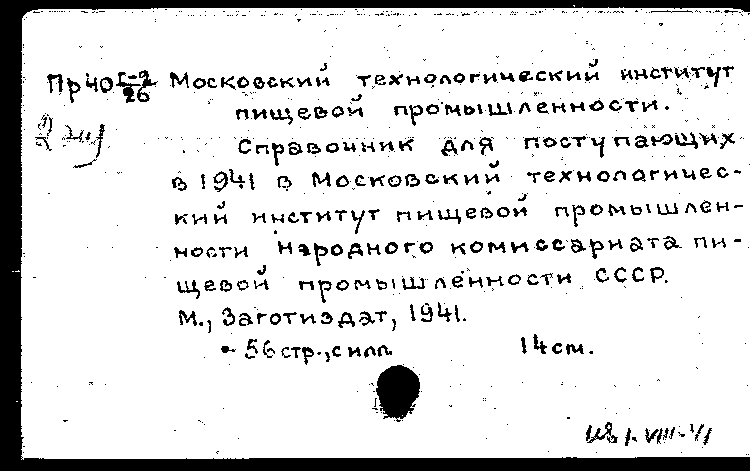 Пр40 Г-2/26 Московский технологический институт
пищевой промышленности.
2 экз
Справочник для поступающих
в 1941 в Московский технологичес-
кий институт пищевой промышлен-
ности Народного комиссариата пи-
щевой промышленности СССР.
М., Заготиздат, 1941.
56 стр., с илл. 14 см.